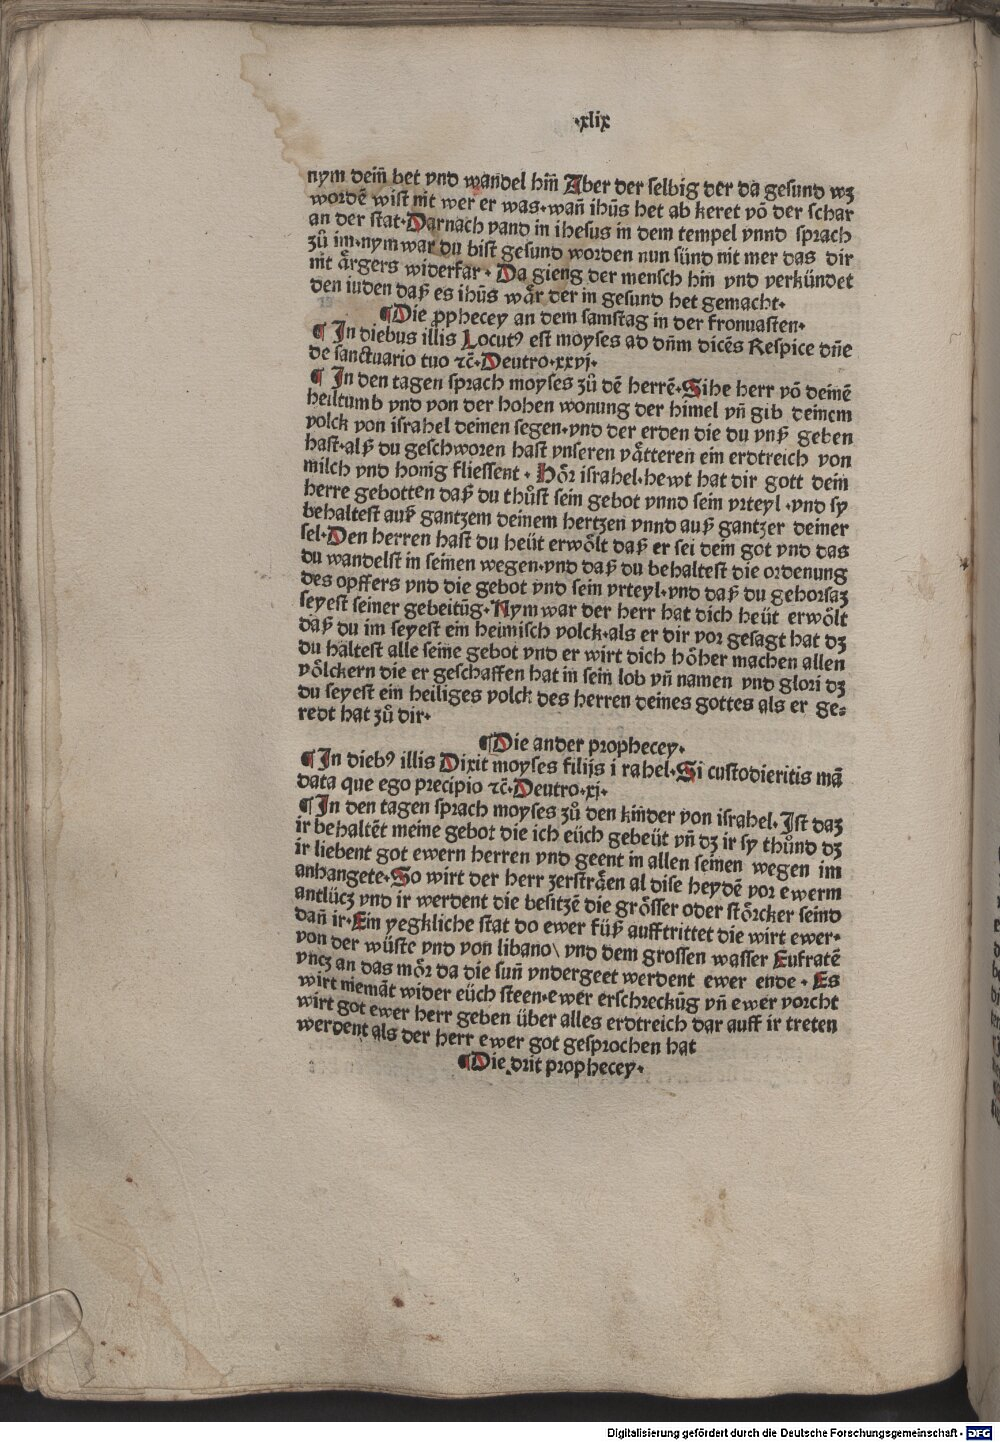 ·xlix
nym dein̄ bet vnd wandel hin̄ Aber der selbig der da gesund wʒ
wordē wist nit wer er was·wan̄ ihūs het ab keret vō der schar
an der stat·Darnach vand in ihesus in dem tempel vnnd sprach
zů im·nym war du bist gesund worden nun sünd nit mer das dir
nit aͤrgers widerfar· Da gieng der mensch hin vnd verkündet
den iuden daß es ihūs waͤr der in gesund het gemacht·
¶Die ꝓphecey an dem samstag in der fronuasten·
¶ In diebus illis Locutꝰ est moyses ad dn̄m dicēs Respice dn̄e
de sanctuario tuo ⁊c̄·Deutro·xxvj·
¶ In den tagen sprach moyses zů dē herrē·Sihe herr vō deinē
heiltumb vnd von der hohen wonung der himel vn̄ gib deinem
volck von israhel deinen segen·vnd der erden die du vnß geben
hast·alß du geschworen hast vnseren vaͤtteren ein erdtreich von
milch vnd honig fliessent· Hoͤr israhel·hewt hat dir gott dein
herre gebotten daß du thůst sein gebot vnnd sein vrteyl·vnd sy
behaltest auß gantzem deinem hertzen vnnd auß gantzer deiner
sel·Den herren hast du heüt erwoͤlt daß er sei dein got vnd das
du wandelst in seinen wegen·vnd daß du behaltest die ordenung
des opffers vnd die gebot vnd sein vrteyl·vnd daß du gehorsaʒ
seyest seiner gebeitūg·Nym war der herr hat dich heüt erwoͤlt
daß du im seyest ein heimisch volck·als er dir vor gesagt hat dʒ
du haltest alle seine gebot vnd er wirt dich hoͤher machen allen
voͤlckern die er geschaffen hat in sein lob vn̄ namen vnd glori dʒ
du seyest ein heiliges volck des herren deines gottes als er ge⸗
redt hat zů dir·
¶Die ander prophecey·
¶In diebꝰ illis Dixit moyses filijs i rahel·Si custodieritis mā
data que ego precipio ⁊c̄·Deutro·xj·
¶In den tagen sprach moyses zů den kinder von israhel·Ist daʒ
ir behaltēt meine gebot die ich eüch gebeüt vn̄ dʒ ir sy thůnd dʒ
ir liebent got ewern herren vnd geent in allen seinen wegen im
anhangete·So wirt der herr zerstraͤen al dise heydē vor ewerm
antlücʒ vnd ir werdent die besitzē die groͤsser oder stoͤrcker seind
dan̄ ir·Ein yegkliche stat do ewer füß aufftrittet die wirt ewer·
von der wüste vnd von libano\ vnd dem grossen wasser Eufratē
vncʒ an das moͤr da die sun̄ vndergeet werdent ewer ende· Es
wirt niemāt wider eüch steen·ewer erschreckūg vn̄ ewer vorcht
wirt got ewer herr geben über alles erdtreich dar auff ir treten
werdent als der herr ewer got gesprochen hat
¶Die drit prophecey·
Digitalisierung gefördert durch die Deutsche Forschungsgemeinschaft - DFG